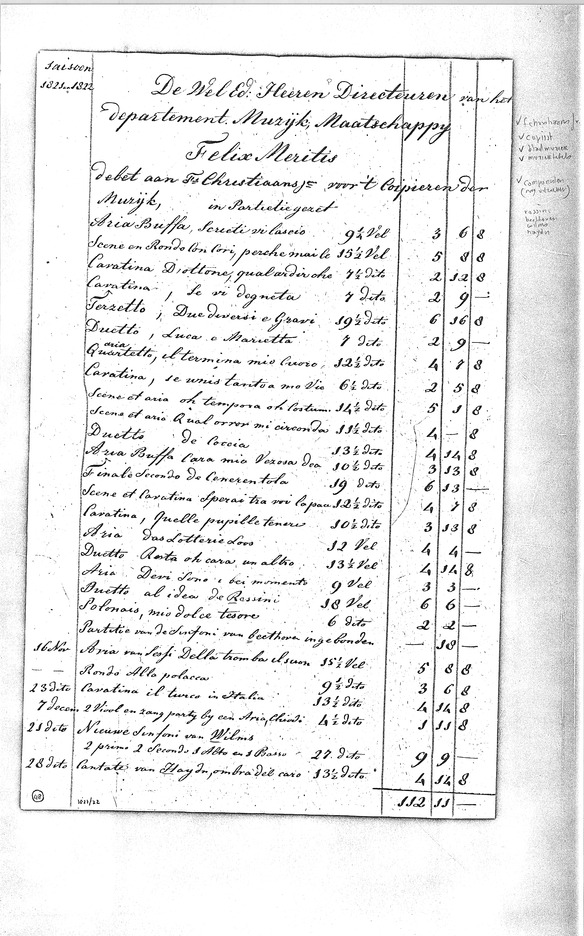 Saisoen
1821–1822
De Wel Ed: Heeren Directeuren van het
departement Muzijk, Maatschappy
Felix Meritis
debet aan Fs Christiaans, voor 't Copieren der
Muzijk, in Partietie gezet
Aria Buffa, Screti vi lascio 9½ Vel 3 6 8
Scene en Rondo Con Cori, perche mai le 15½ Vel 5 8 8
Cavatina D'ottone, qual ardir che 7½ dito 2 12 8
Cavatina, Se vi degneta 7 dito 2 9 —
Terzetto, Due diversi e Gravi 19½ dito 6 16 8
Duetto, Luca e Marietta 7 dito 2 9 —
aria
Quartetto, il termina mio Cuoro, 12½ dito 4 7 8
Cavatina, se unis tantoa mo Vio 6½ dito 2 5 8
Scene et aria oh tempora oh Costum. 14½ dito 5 1 8
Scene et aria Qual orror mi circonda 11½ dito 4 — 8
Duetto de Coccia 13½ dito 4 14 8
Aria Buffa Cara mia Vezosa dea 10½ dito 3 13 8
Finale Secondo de Cenerentola 19 dito 6 13 —
Scene et Cavatina Sperai tra voi la pau 12½ dito 4 7 8
Cavatina, Quelle pupille tenere 10½ dito 3 13 8
Aria das Lotterie Loos 12 Vel 4 4 —
Duetto Resta oh cara, un altro 13½ Vel 4 14 8
Aria Devi Sono i bei momenti 9 Vel 3 3 —
Duetto al idea de Rossini 18 Vel 6 6 —
Polonais, mio dolce tesore 6 dito 2 2 —
Partitie van de Sinfoni van Beethoven ingebonden — 18 —
16 Nov Aria van Della tromba il suon 15½ Vel 5 8 8
— — Rondo Alla polacca 9½ dito 3 6 8
23 dito Cavatina il turco in Italia 13½ dito 4 14 8
7 decem 2 Viool en zang party by een Aria, 4½ dito 1 11 8
21 dito Nieuwe Sinfoni van Wilms
2 primi 2 Secondo 1 Alto en 1 Basso 27 dito 9 9 —
28 dito Cantate van Haydn, ombra del caro 13½ dito 4 14 8
112 11 —
48
1821/22
✓ copiist
✓ bladmuziek
✓ componisten
rossini
beethoven
wilms
haydn